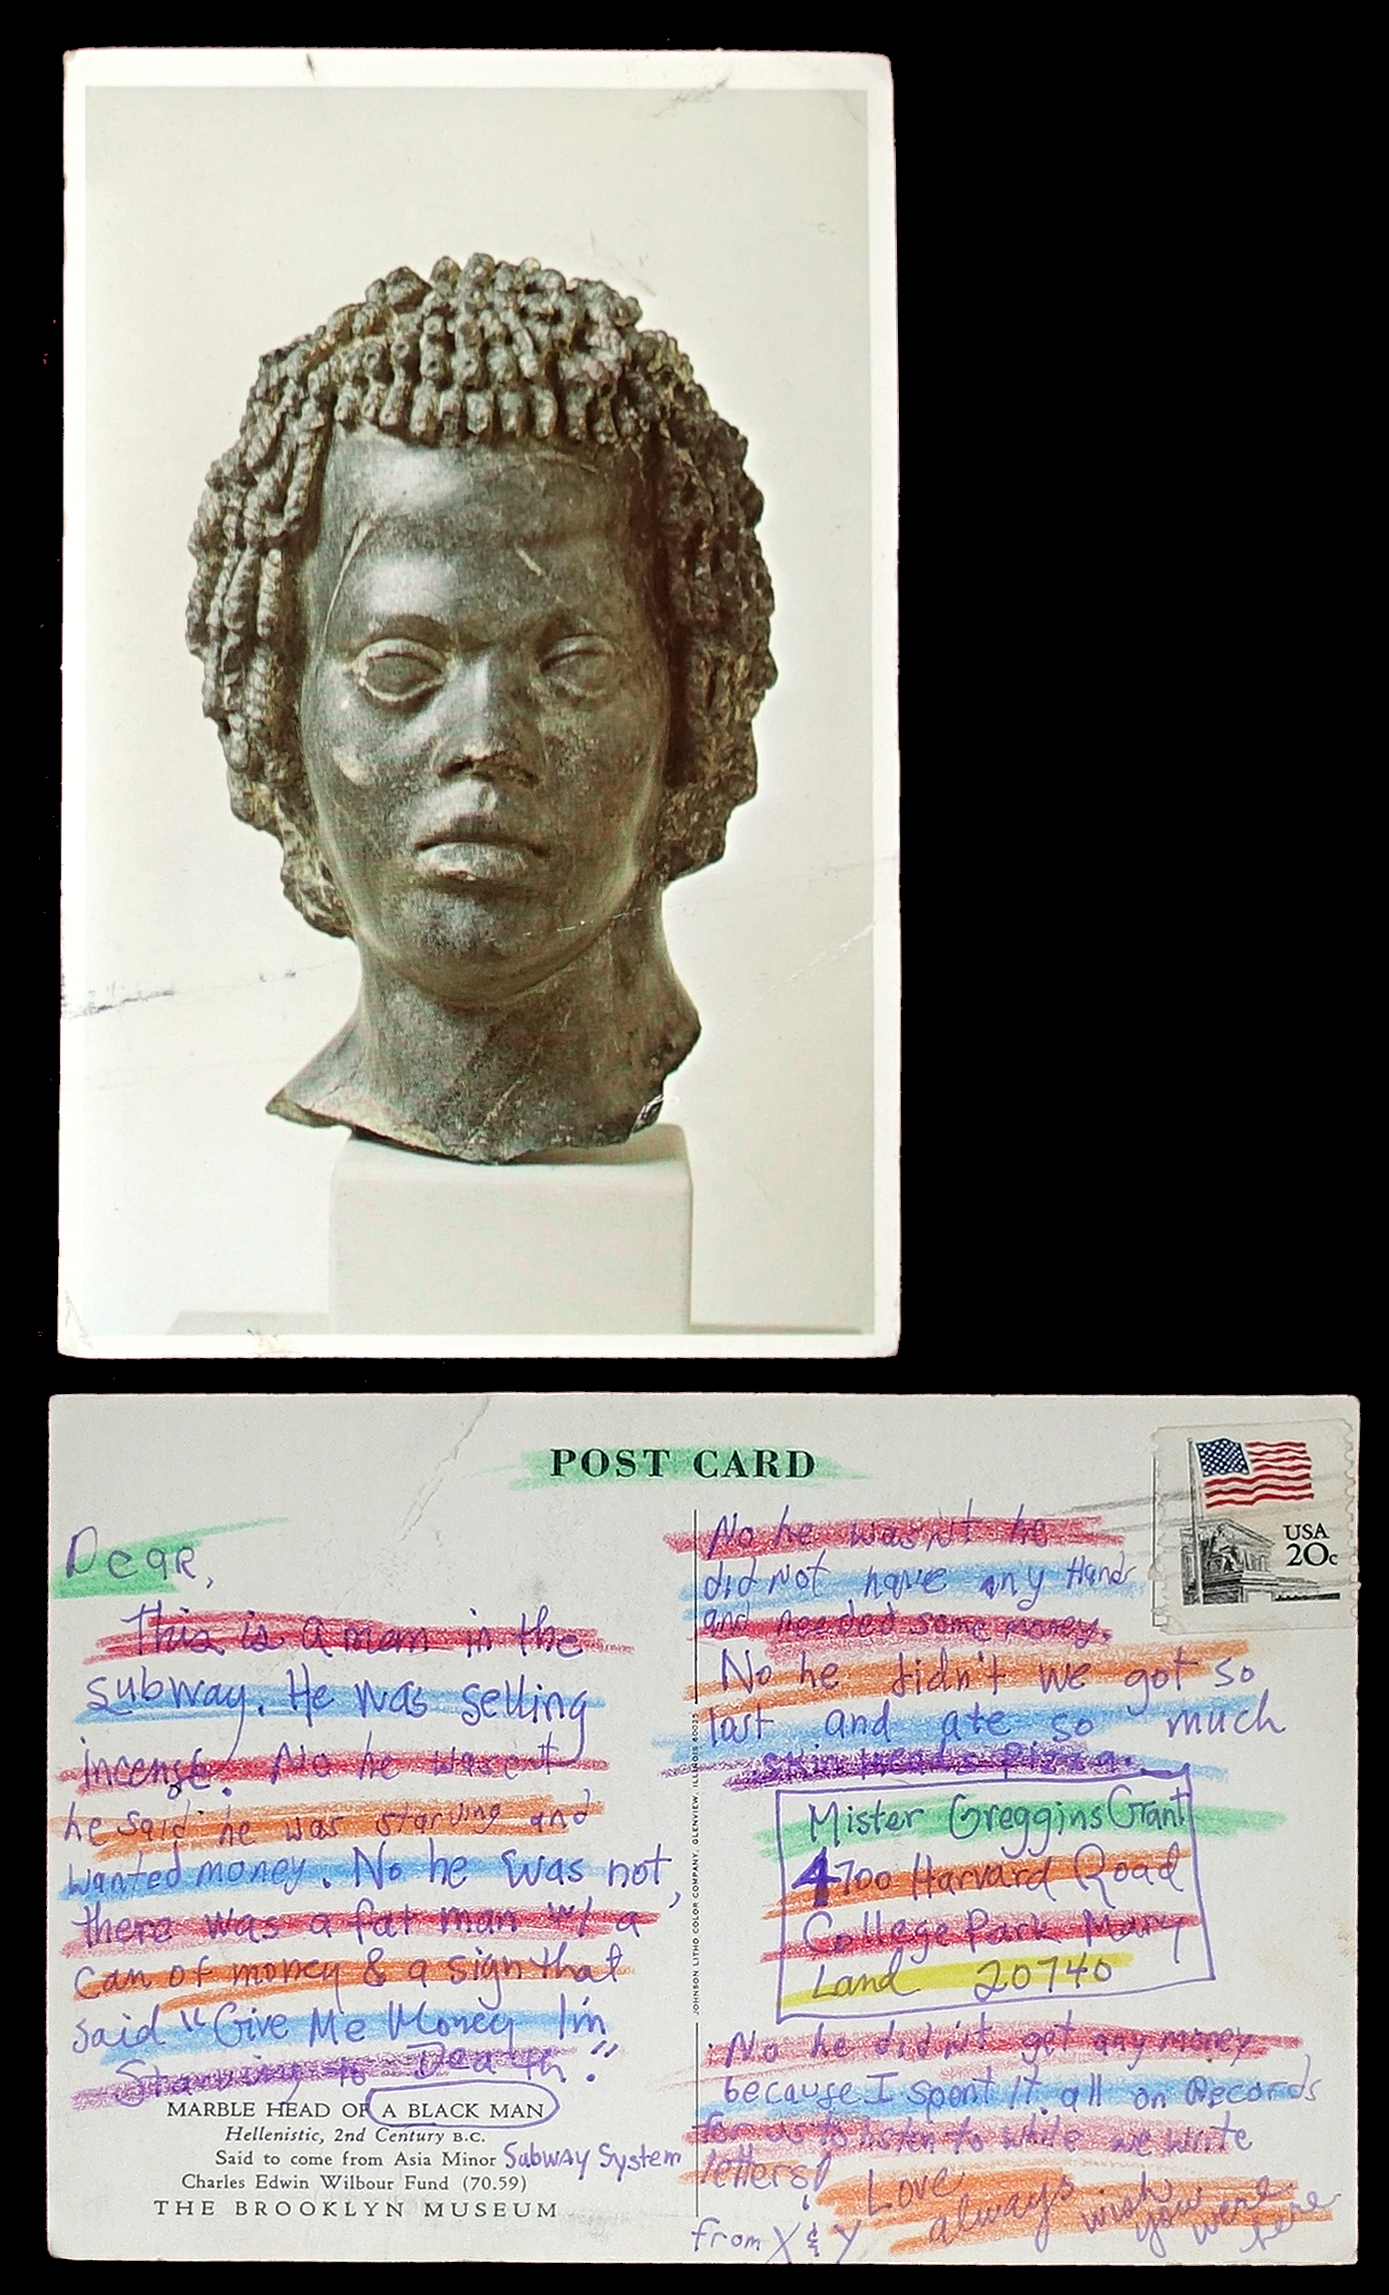 POST CARD
USA
20c
Dear,
This is a man in the
subway. He was selling
incense. No he wasent
he said he was starving and
wanted money. No he was not,
there was a fat man w/ a
can of money & a sign that
said "Give Me Money I'm
Starving to Death."
MARBLE HEAD OF A BLACK MAN
Hellenistic, 2nd Century B.C.
Said to come from Asia Minor Subway System
Charles Edwin Wilbour Fund (70.59)
THE BROOKLYN MUSEUM
JOHNSON LITHO COLOR COMPANY, GLENVIEW, ILLINOIS 60025
No he wasn't he
did not have any Hands
and needed some money.
No he didn't we got so
lost and ate so much
skin heads pizza.
Mister Greggins Grant
4700 Harvard Road
College Park Mary
Land 20740
No he didn't get any money
because I spent it all on Records
for us to listen to while we write
letters!
Love
always wish
you were
here
from X & Y